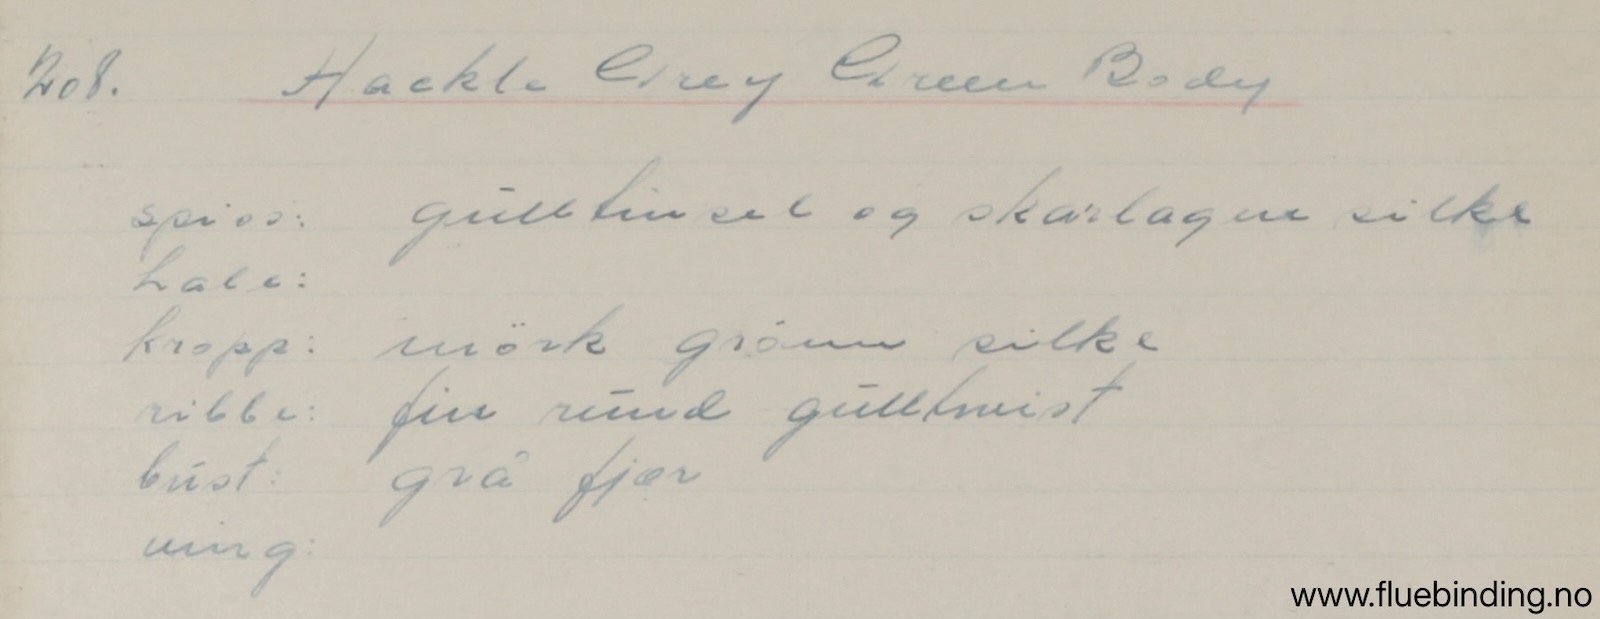 208. Hackle Grey Green Body
spiss: gulltinsel og skarlagen silke
hale:
kropp: mörk grönn silke
ribbe: fin rund gulltwist
bust: grå fjær
ving:
www.fluebinding.no